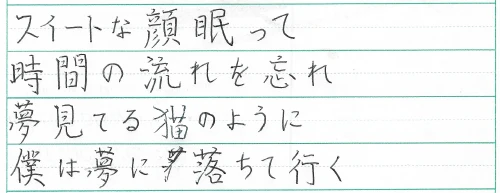 スイートな顔眠って
時間の流れを忘れ
夢見てる猫のように
僕は夢に落ちて行く